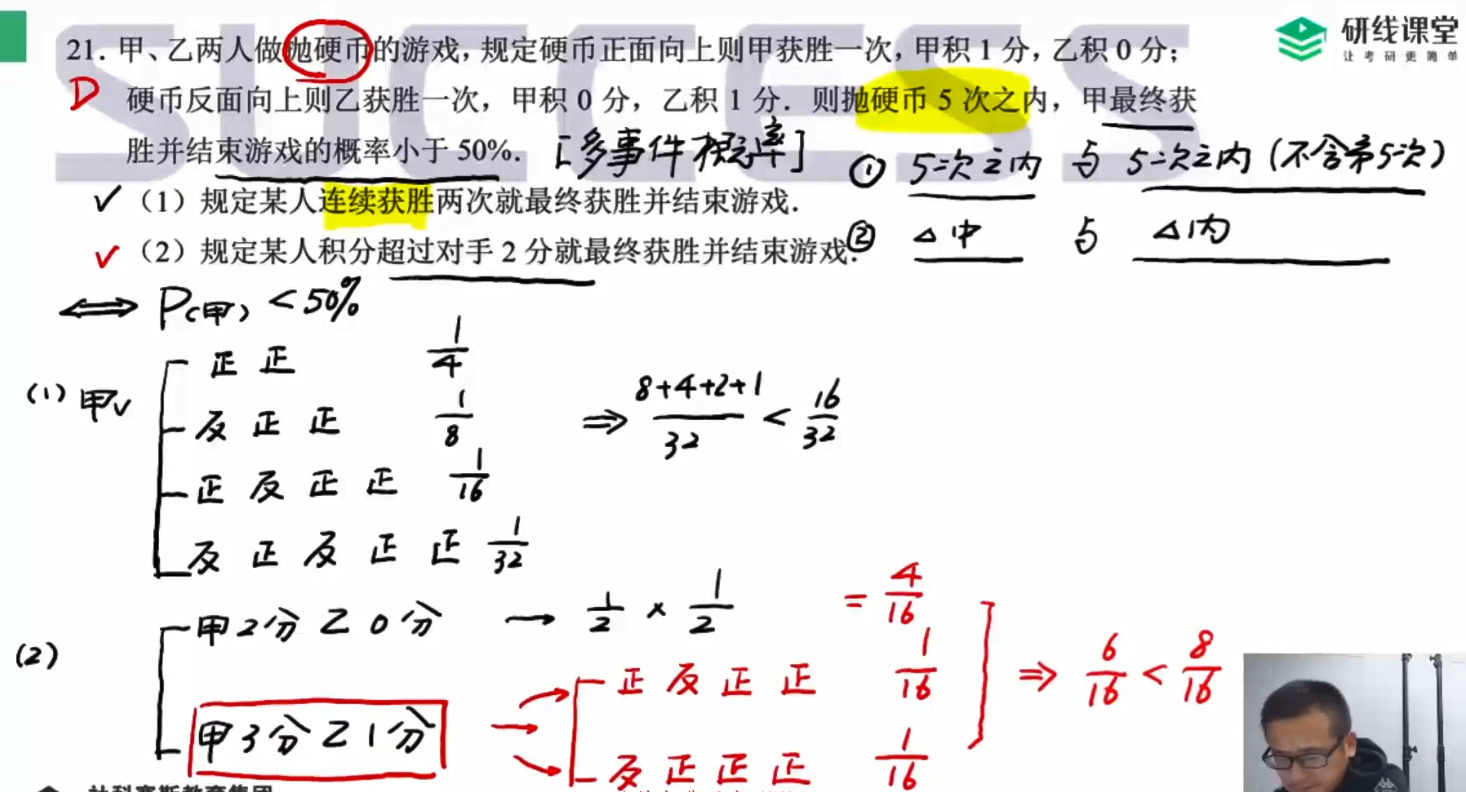 SUCCESS
研线课堂
让考研更简单
21. 甲、乙两人做抛硬币的游戏，规定硬币正面向上则甲获胜一次，甲积 1 分，乙积 0 分；
D 硬币反面向上则乙获胜一次，甲积 0 分，乙积 1 分．则抛硬币 5 次之内，甲最终获
胜并结束游戏的概率小于 50%．[多事件概率]
① 5次之内 与 5次之内(不含第5次)
✓（1）规定某人连续获胜两次就最终获胜并结束游戏．
② △中 与 △内
✓（2）规定某人积分超过对手 2 分就最终获胜并结束游戏．
⟺ P(甲) < 50%
(1) 甲✓
正 正 1/4
反 正 正 1/8
⇒ (8+4+2+1)/32 < 16/32
正 反 正 正 1/16
反 正 反 正 正 1/32
(2)
甲2分乙0分 → 1/2 × 1/2 = 4/16
正 反 正 正 1/16
⇒ 6/16 < 8/16
甲3分乙1分
反 正 正 正 1/16
社科赛斯教育集团